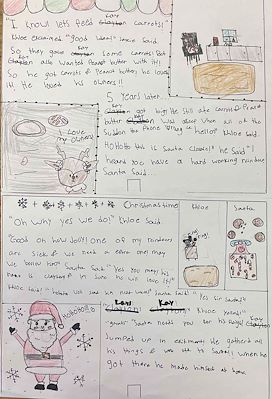 Kay
"I know! lets feed Clayton carrots!"
Khloe exclaimed "good idea!" said
So they gave Kay Clayton some carrots! But
Kay Clayton also wanted Peanut butter with it!!
So he got carrots & Peanut butter, he loved
it! He loved his owners!!
I love
my owners!
5 years later...
Kay Clayton got big! He still ate carrots & Peanut
butter. Was about when all of the
Sudden the Phone "Ring" "hello?" Khloe said.
HoHoHo this is Santa Clause!!" he Said "I
heard you have a hard working reindeer
Santa Said..
Christmas time
"Oh why yes we do!" Khloe Said.
Khloe
Santa
"Good oh how Jolly! One of my reindeers
are sick & we need a extra one! may
we borrow him?" Santa Said. "Yes you may! his
name is Clayton & I'm sure he will love it!"
Khloe Said. "Hohoho will see him next week!" Santa Said. "Yes sir Santa!!"
Kay Clayton! Kay Clayton! Khloe
"grunt" "Santa needs you for his sleigh! Kay Clayton
Jumped up in excitment. He gatherd all
his things & was off to Santa's when he
got there he made himself at home
HoHoHo!!